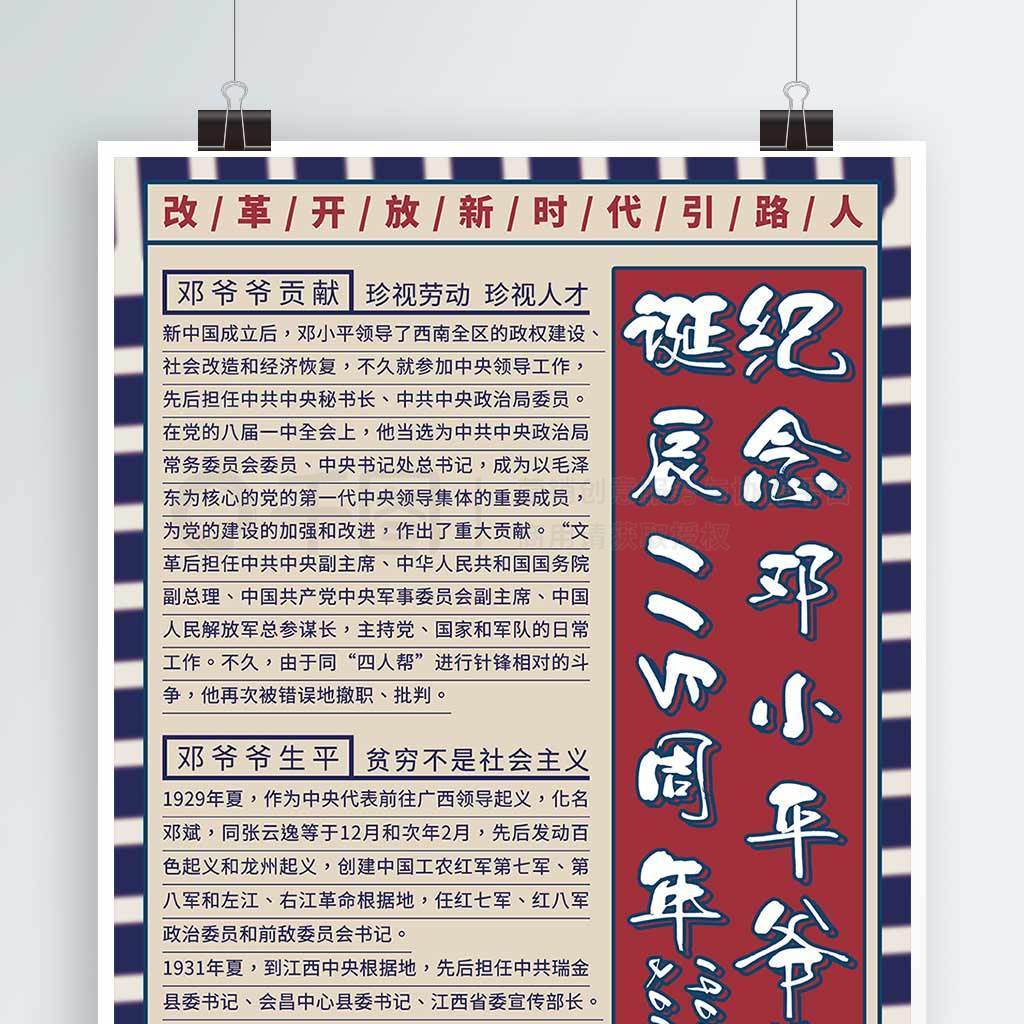 改/革/开/放/新/时/代/引/路/人
邓爷爷贡献 珍视劳动 珍视人才
新中国成立后，邓小平领导了西南全区的政权建设、
社会改造和经济恢复，不久就参加中央领导工作，
先后担任中共中央秘书长、中共中央政治局委员。
在党的八届一中全会上，他当选为中共中央政治局
常务委员会委员、中央书记处总书记，成为以毛泽
东为核心的党的第一代中央领导集体的重要成员，
为党的建设的加强和改进，作出了重大贡献。“文
革后担任中共中央副主席、中华人民共和国国务院
副总理、中国共产党中央军事委员会副主席、中国
人民解放军总参谋长，主持党、国家和军队的日常
工作。不久，由于同“四人帮”进行针锋相对的斗
争，他再次被错误地撤职、批判。
邓爷爷生平 贫穷不是社会主义
1929年夏，作为中央代表前往广西领导起义，化名
邓斌，同张云逸等于12月和次年2月，先后发动百
色起义和龙州起义，创建中国工农红军第七军、第
八军和左江、右江革命根据地，任红七军、红八军
政治委员和前敌委员会书记。
1931年夏，到江西中央根据地，先后担任中共瑞金
县委书记、会昌中心县委书记、江西省委宣传部长。
纪念邓小平爷
诞辰一一5周年